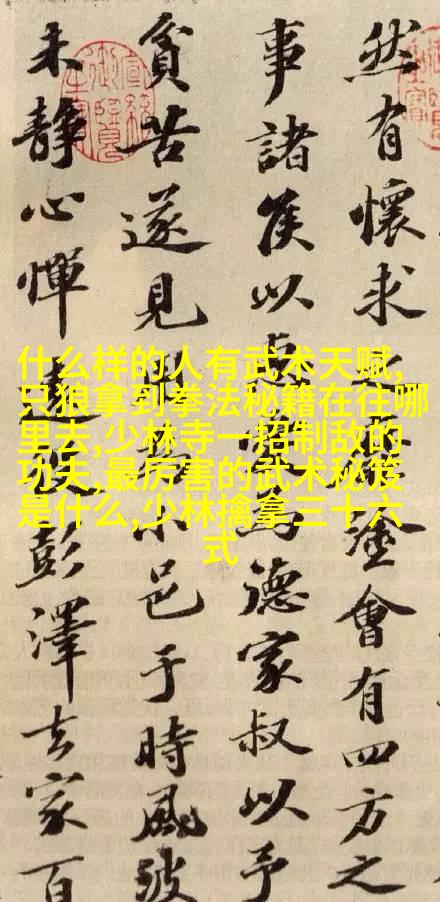 然有懷求塗會有四方之
事諸侯以德家叔以予
貧苦遂見小邑于時風波
未靜心憚遠役彭澤去家百
什么样的人有武术天赋,
只狼拿到拳法秘籍在往哪
里去,少林寺一招制敌的
功夫,最厉害的武术秘笈
是什么,少林擒拿三十六
式